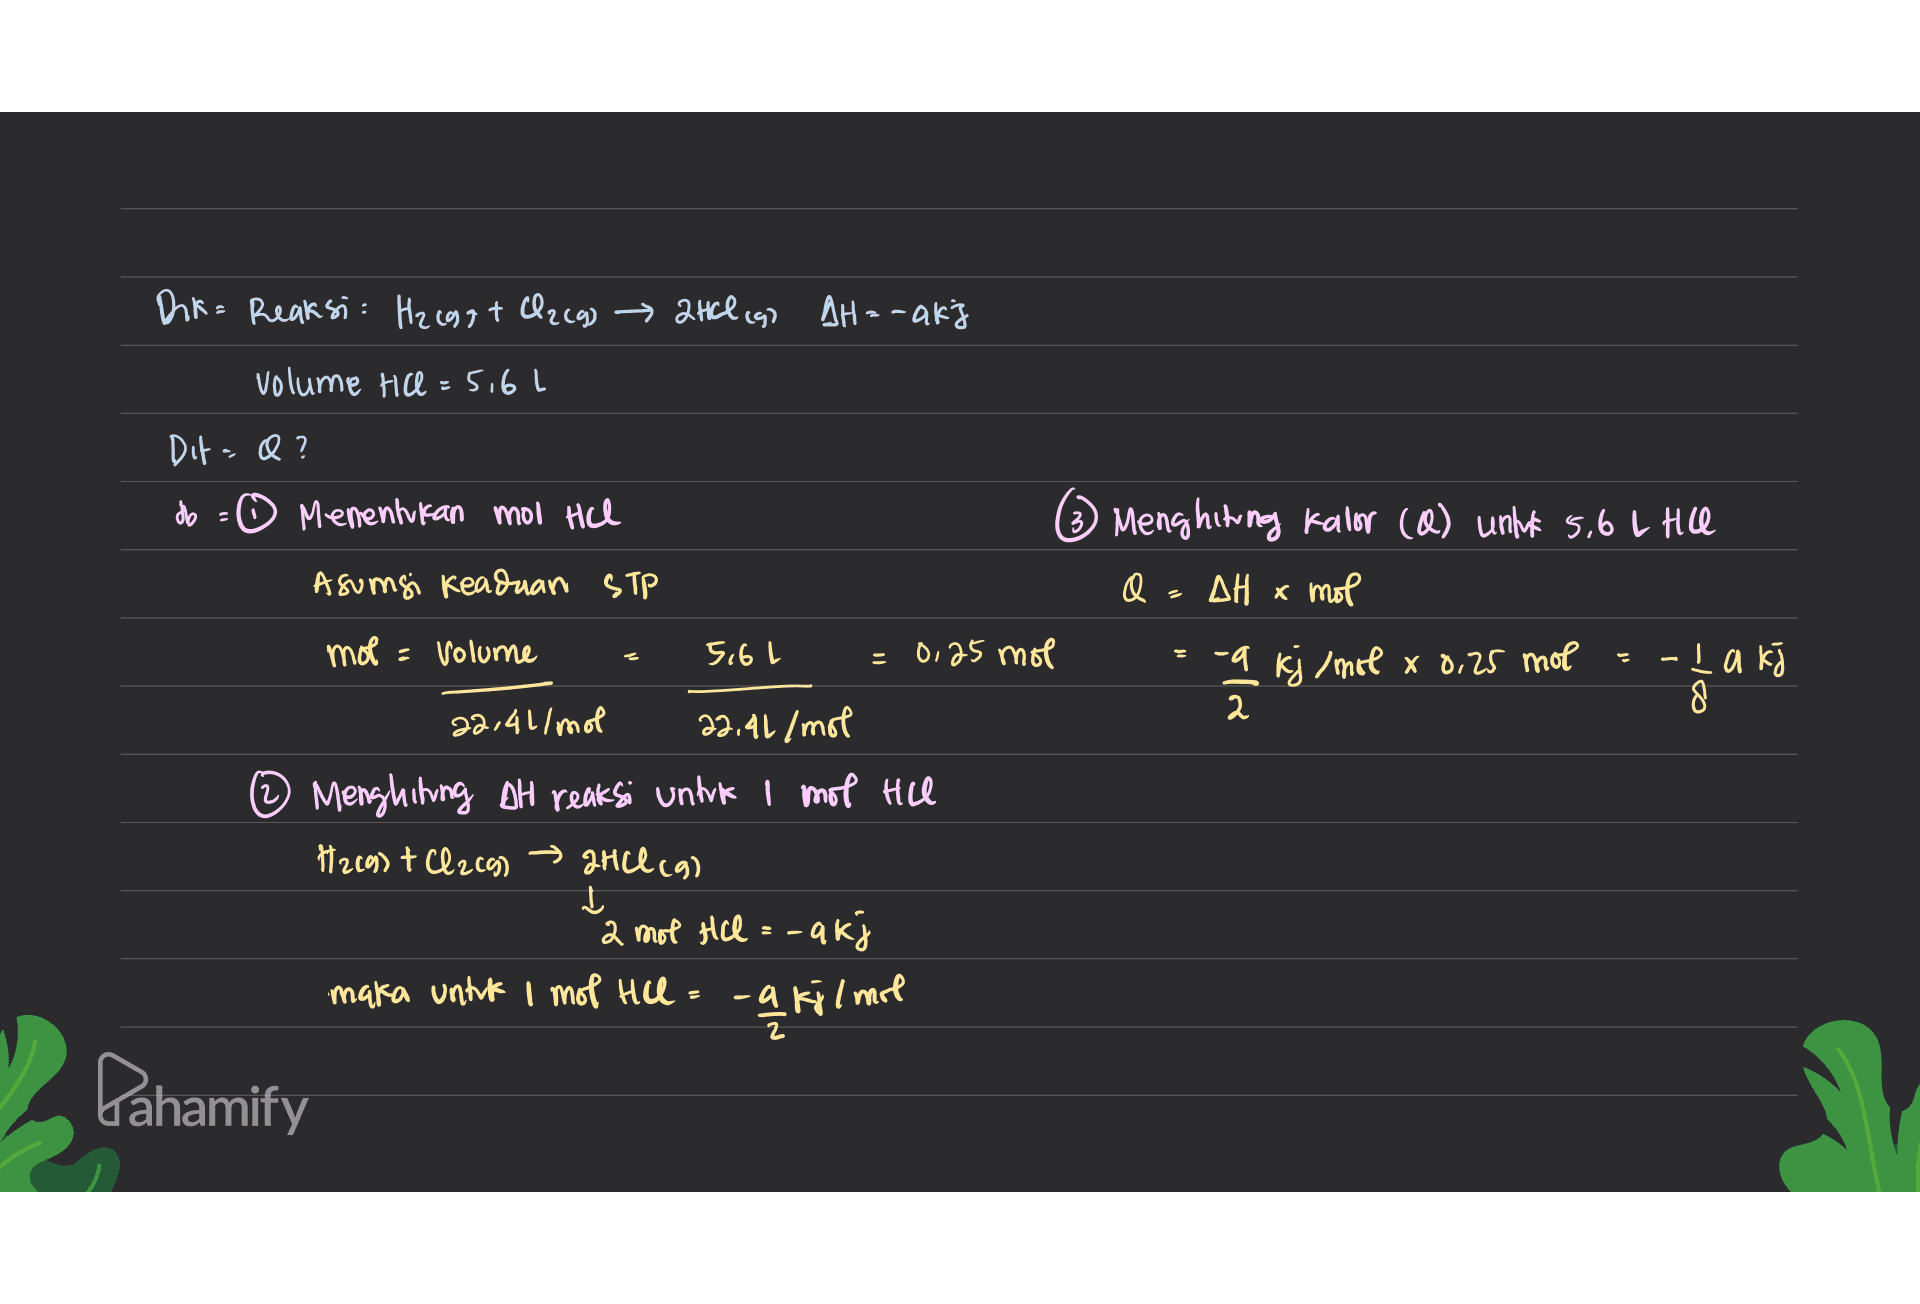 Dik = Reaksi : H2(g) + Cl2(g) → 2HCl(g) ΔH = -akj
Volume HCl = 5,6 L
Dit = Q ?
db = ① Menentukan mol HCl
Asumsi keaduan STP
mol = Volume / 22,4L/mol = 5,6 L / 22,4L/mol = 0,25 mol
② Menghitung ΔH reaksi untuk 1 mol HCl
H2(g) + Cl2(g) → 2HCl(g)
↓
2 mol HCl = -akj
maka untuk 1 mol HCl = -a/2 kj/mol
③ Menghitung kalor (Q) untuk 5,6 L HCl
Q = ΔH x mol
= -a/2 kj/mol x 0,25 mol = -1/8 a kj
Pahamify